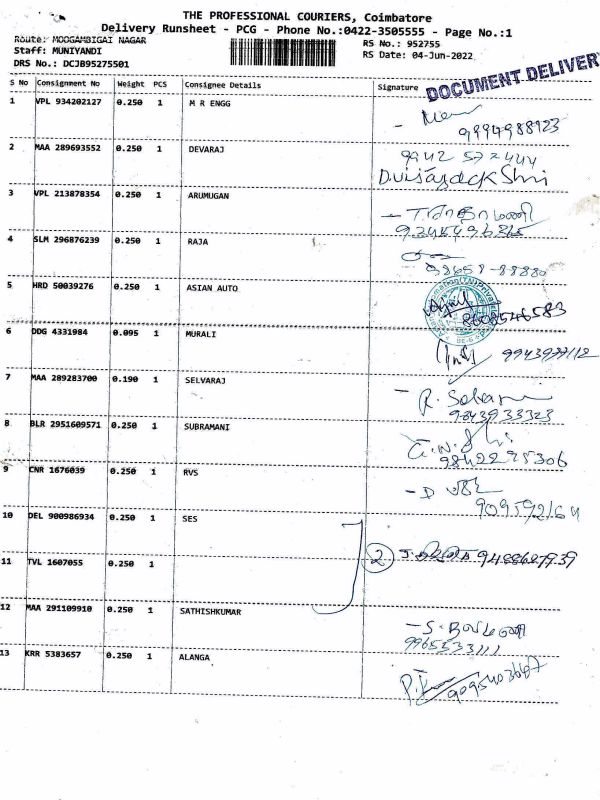 THE PROFESSIONAL COURIERS, Coimbatore
Delivery Runsheet - PCG - Phone No.:0422-3505555 - Page No.:1
Route: MOOGAMBIGAI NAGAR
RS No.: 952755
Staff: MUNIYANDI
RS Date: 04-Jun-2022
DRS No.: DCJB95275501
DOCUMENT DELIVERY
S No Consignment No Weight PCS Consignee Details Signature
1 VPL 934202127 0.250 1 M R ENGG
9994988923
2 MAA 289693552 0.250 1 DEVARAJ
9942 572444
3 VPL 213878354 0.250 1 ARUMUGAN
4 SLM 296876239 0.250 1 RAJA
98658-88880
5 HRD 50039276 0.250 1 ASIAN AUTO
8608546583
6 DDG 4331984 0.095 1 MURALI
9943977112
7 MAA 289283700 0.190 1 SELVARAJ
9843933323
8 BLR 2951609571 0.250 1 SUBRAMANI
9842295306
9 CNR 1676039 0.250 1 RVS
10 DEL 900986934 0.250 1 SES
2 9488627939
11 TVL 1607055 0.250 1
12 MAA 291109910 0.250 1 SATHISHKUMAR
9965533111
13 KRR 5383657 0.250 1 ALANGA